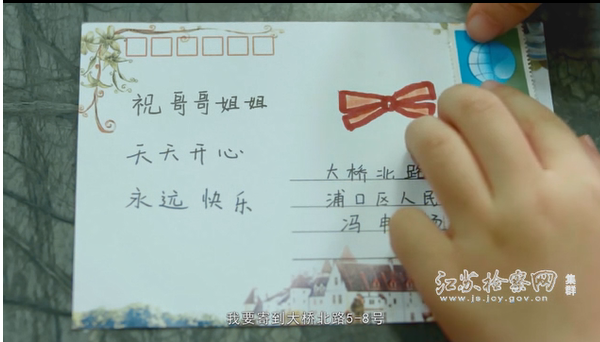 祝哥哥姐姐
天天开心
永远快乐
大桥北路
浦口区人民
冯申
江苏检察网 集群
www.js.jcy.gov.cn
我要寄到大桥北路5-8号